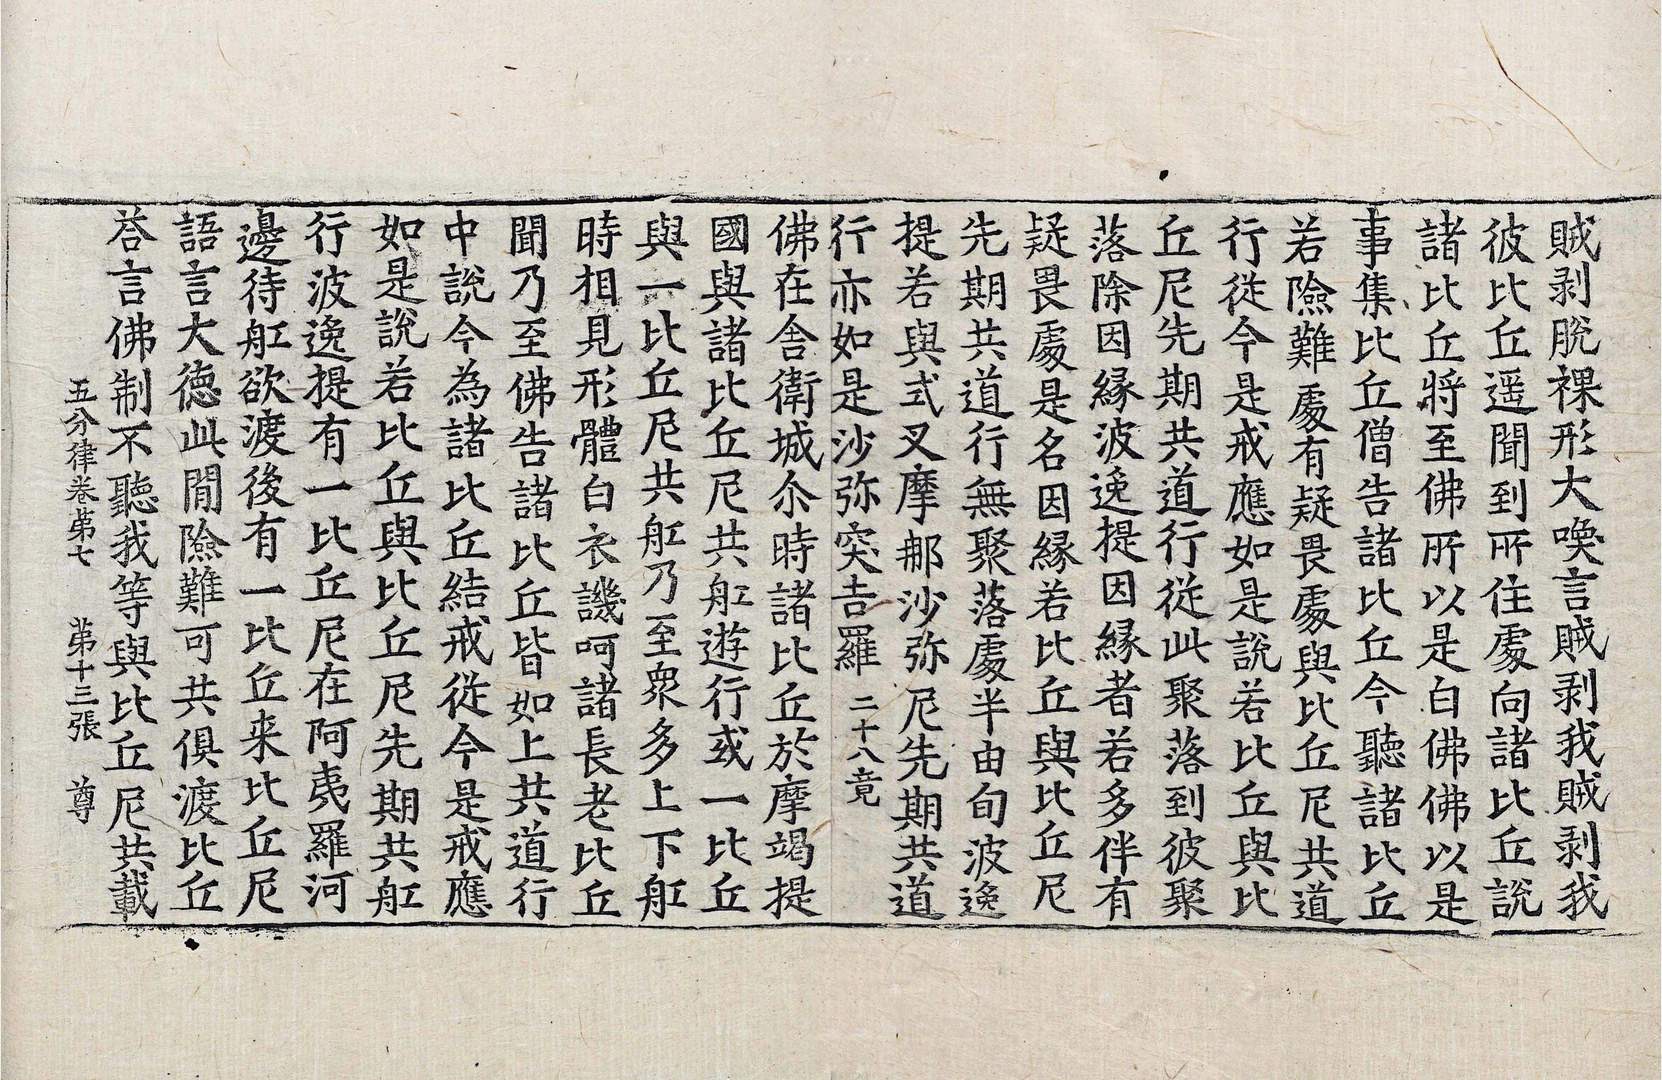 賊剥脫裸形大喚言賊剥我賊剥我
彼比丘遥聞到所住處向諸比丘說
諸比丘將至佛所以是白佛佛以是
事集比丘僧告諸比丘今聽諸比丘
若險難處有疑畏處與比丘尼共道
行從今是戒應如是說若比丘與比
丘尼先期共道行從此聚落到彼聚
落除因縁波逸提因縁者若多伴有
疑畏處是名因縁若比丘與比丘尼
先期共道行無聚落處半由旬波逸
提若與式叉摩那沙弥尼先期共道
行亦如是沙弥突吉羅 二十八竟
佛在舍衛城尒時諸比丘於摩竭提
國與諸比丘尼共舡遊行或一比丘
與一比丘尼共舡乃至衆多上下舡
時相見形體白衣譏呵諸長老比丘
聞乃至佛告諸比丘皆如上共道行
中說今為諸比丘結戒從今是戒應
如是說若比丘與比丘尼先期共舡
行波逸提有一比丘尼在阿夷羅河
邊待舡欲渡後有一比丘来比丘尼
語言大徳此閒險難可共俱渡比丘
荅言佛制不聽我等與比丘尼共載
五分律卷第七 第十三張 尊